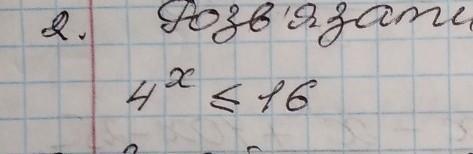 2. Розв'язати
4^x ≤ 16